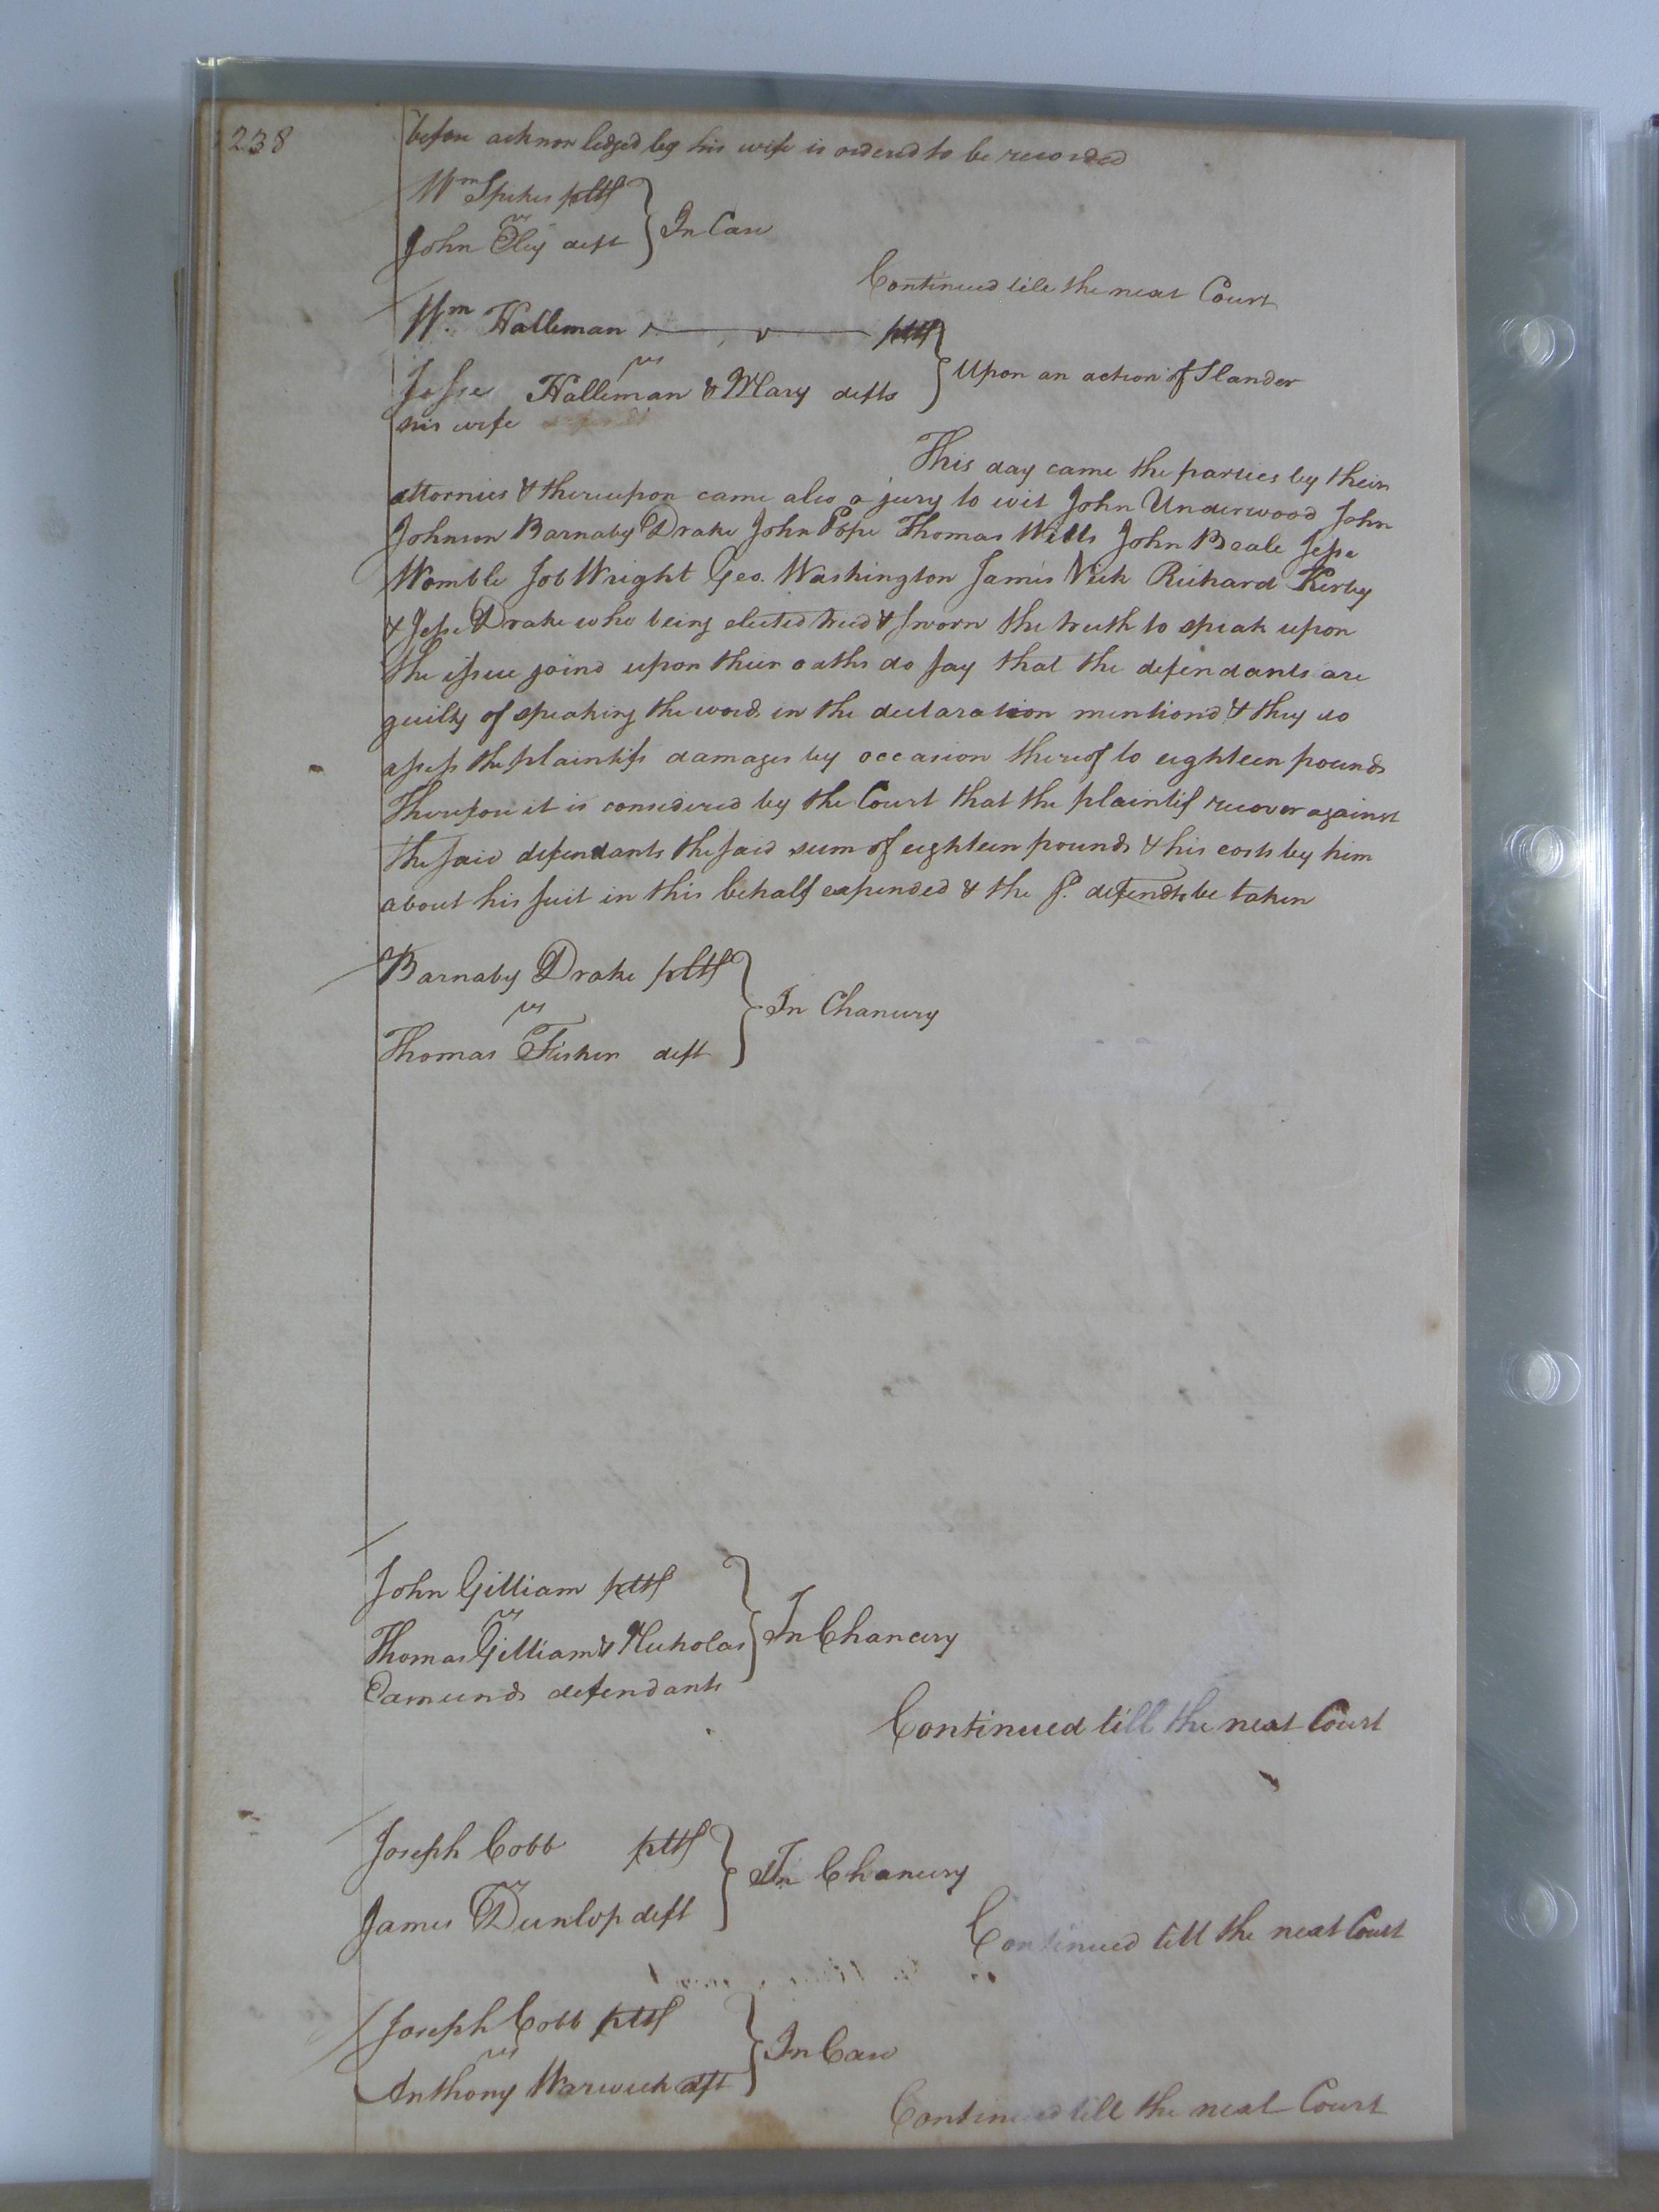 238
before acknowledged by his wife is ordered to be recorded
Wm Spikes pltf
vs
John Eley deft
In Case
Continued till the next Court
Wm. Halleman pltf
vs
Jesse Halleman & Mary defts
his wife
Upon an action of Slander
This day came the parties by their
attornies & thereupon came also a jury to wit John Underwood John
Johnson Barnaby Drake John Pope Thomas Wills John Beale Jesse
Womble Job Wright Geo. Washington James Vick Richard Kerby
& Jesse Drake who being elected tried & sworn the truth to speak upon
the issue joind upon their oaths do say that the defendants are
guilty of speaking the words in the declaration mention'd & they do
assess the plaintifs damages by occasion thereof to eighteen pounds
Therefore it is considered by the Court that the plaintif recover against
the said defendants the said sum of eighteen pounds & his costs by him
about his suit in this behalf expended & the sd. defendts be taken
Barnaby Drake pltf
vs
Thomas Fisher deft
In Chancery
John Gilliam pltf
vs
Thomas Gilliam & Nicholas
Edmunds defendants
In Chancery
Continued till the next Court
Joseph Cobb pltf
vs
James Dunlop deft
In Chancery
Continued till the next Court
Joseph Cobb pltf
vs
Anthony Warwick deft
In Case
Continued till the next Court